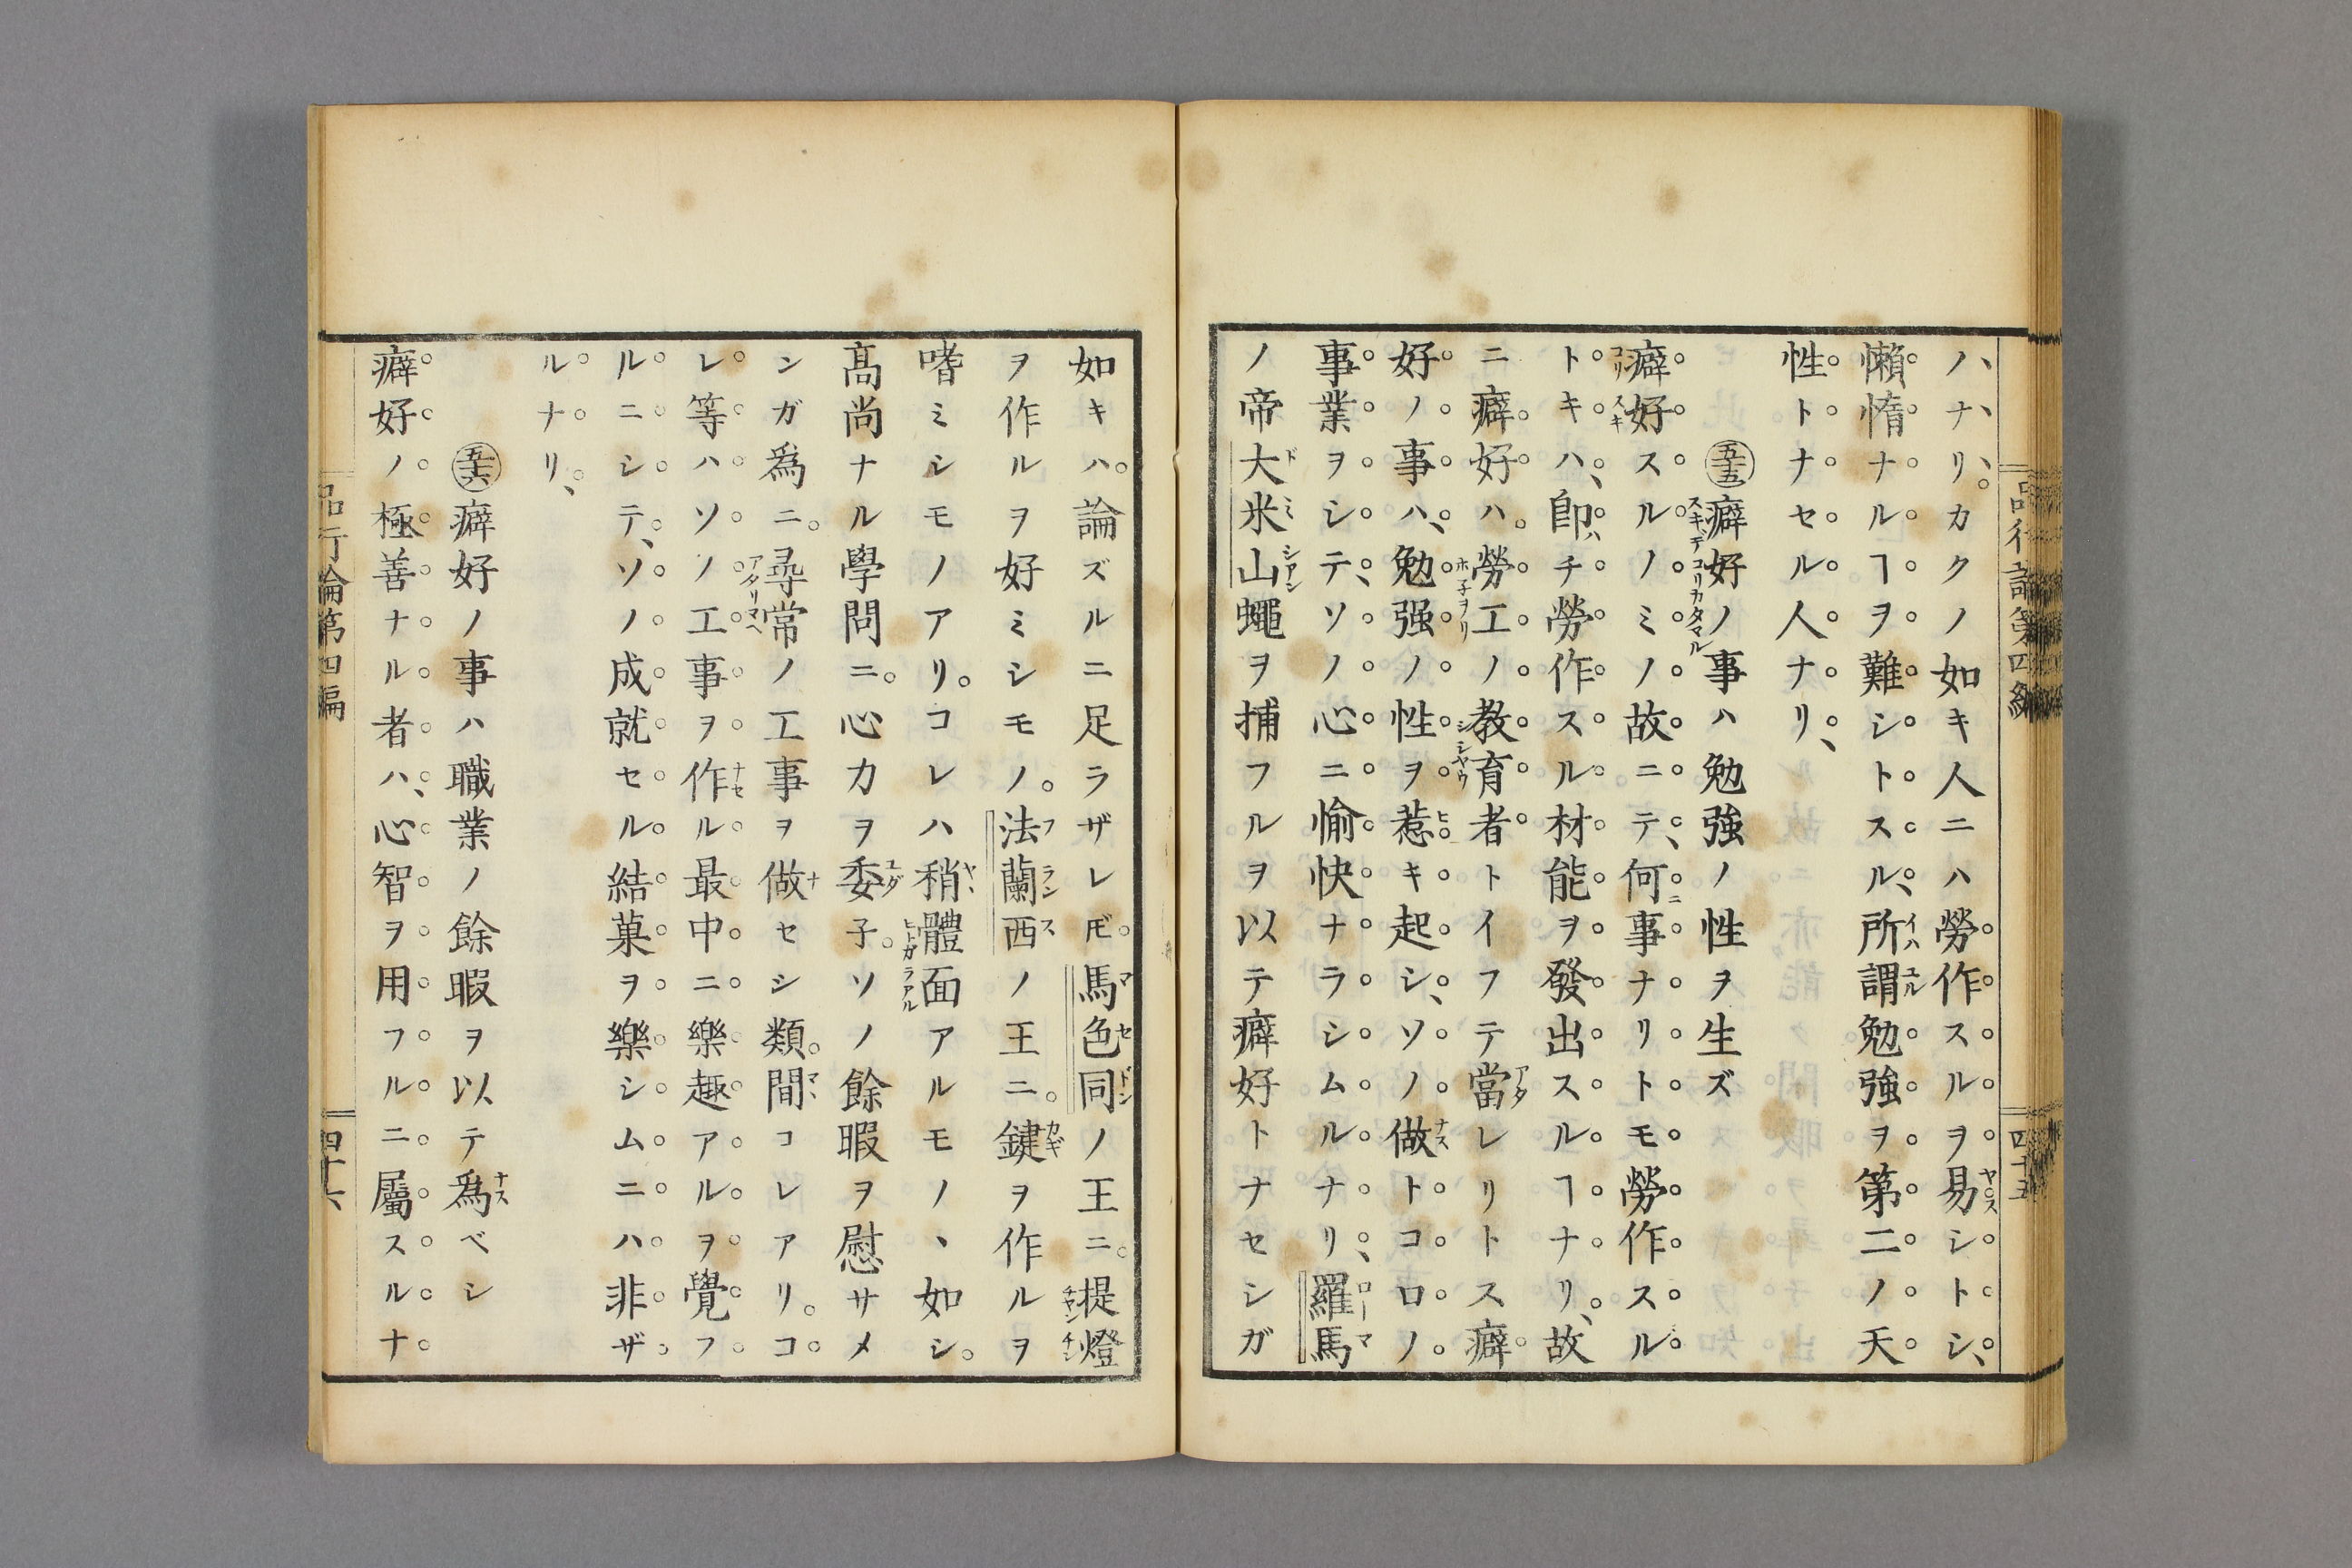 品行論第四編
四十五
ハ、ナ、リ、カクノ如キ人ニハ勞作スルヲ易シトシ、
懶惰ナルヿヲ難シトスル、所謂勉強ヲ第二ノ天
性トナセル人ナリ、
五十五癖好ノ事ハ勉強ノ性ヲ生ズ
癖好スルノミノ故ニテ、何事ナリトモ勞作スル
トキハ、卽チ勞作スル材能ヲ發出スルヿナリ、故
ニ癖好ハ。勞工ノ教育者トイフテ當レリトス癖
好ノ事ハ、勉强ノ性ヲ惹キ起シ、ソノ做トコロノ
事業ヲシテ、ソノ心ニ愉快ナラシムルナリ、羅馬
ノ帝大米山蠅ヲ捕フルヲ以テ癖好トナセシガ
如キハ。論ズルニ足ラザレ𪜈。馬色同ノ王ニ。提燈
ヲ作ルヲ好ミシモノ。法蘭西ノ王ニ。鍵ヲ作ルヲ
嗜ミシモノアリ。コレハ稍體面アルモノヽ如シ。
髙尚ナル學問ニ。心力ヲ委子。ソノ餘暇ヲ慰サメ
ンガ爲ニ。尋常ノ工事ヲ做セシ類。間コレアリ。コ
レ等ハソノ工事ヲ作ル最中ニ樂趣アルヲ覺フ
ルニシテ、ソノ成就セル結菓ヲ樂シムニハ非ザ
ルナリ、
五十六癖好ノ事ハ職業ノ餘暇ヲ以テ爲ベシ
癖好ノ極善ナル者ハ、心智ヲ用フルニ屬スルナ
品行論第四編
四十六